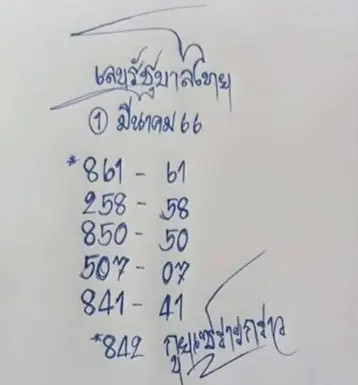 เลขรัฐบาลไทย
① มีนาคม 66
*861 - 61
258 - 58
850 - 50
507 - 07
841 - 41
*842